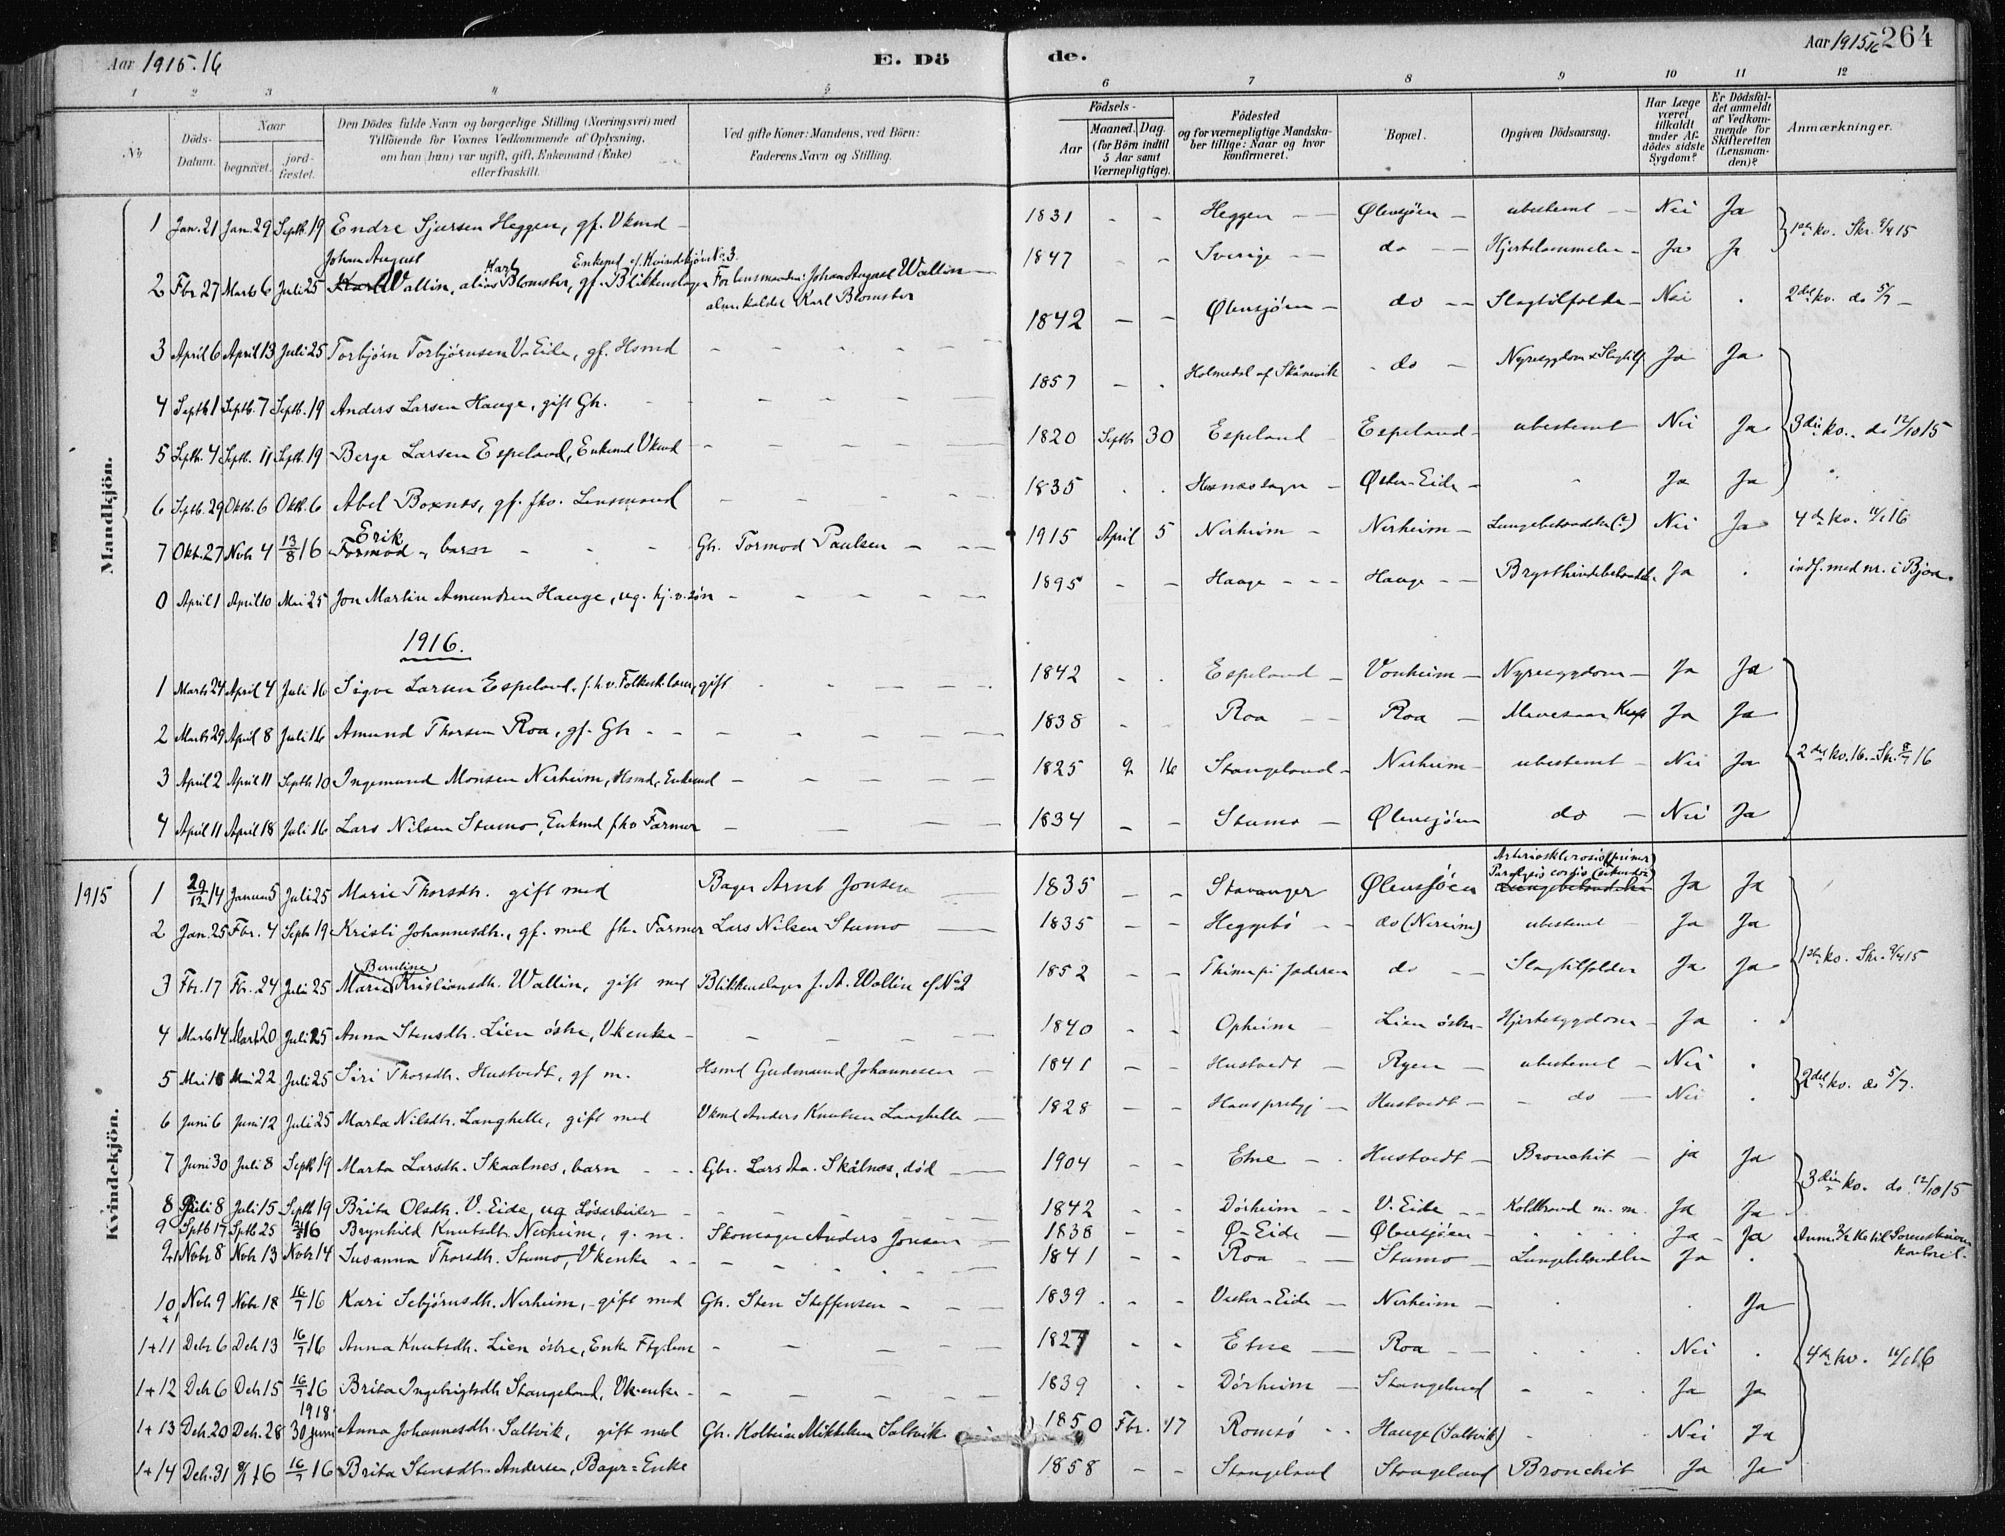 Aar 1915.16
E. Dö
de.
Aar 1915.16
264
1 2 3 4 5 6 7 8 9 10 11 12
No
Döds-Datum.
Naar
begravet.
jord-fæstet.
Den Dödes fulde Navn og borgerlige Stilling (Næringsvei) med Tilföiende for Voxnes Vedkommende af Oplysning, om han (hun) var ugift, gift, Enkemand (Enke) eller fraskilt.
Ved gifte Koner: Mandens, ved Börn: Faderens Navn og Stilling.
Födsels-
Aar
Maaned. Dag.
(for Börn indtil 5 Aar samt Værnepligtige).
Födested og for værnepligtige Mandskaber tillige: Naar og hvor konfirmeret.
Bopæl.
Opgiven Dödsaarsag.
Har Læge været tilkaldt under Afdödes sidste Sygdom?
Er Dödsfaldet anmeldt af Vedkommende for Skifteretten (Lensmanden)?
Anmærkninger.
Mandkjön.
1 Jan. 21 Jan. 29 Septb. 19 Endre Sjursen Heggen, gf. Vkmd - 1831 - - Heggen - - Ølensjöen - ubestemt - - Nei Ja
1ste kv. Skr. 9/4 15
Johan August
Karl
Enkemd. cf. Kvindekjön No. 3.
2 Fbr. 27 Marts 6 Juli 25 Karl Wallin, alias Blomster, gf. Blikkenslager For lensmanden: Johan August Wallin - 1847 - - Sverige - - do - - Hjertelammelse - Ja Ja
alm. kaldt Karl Blomster
3 April 6 April 13 Juli 25 Torbjørn Torbjørnsen V-Eide, gf. Hsmd - 1842 - - Ølensjöen - do - - Slagtilfælde - Nei . 2det kv. do 5/7 -
4 Septb 1 Septb. 7 Septb. 19 Anders Larsen Hauge, gift Gb. - 1857 - . Holmedal af Skånevik - do - Nyresygdom & Slagtilf. Ja Ja
5 Septb. 4 Septb. 11 Septb. 19 Berge Larsen Espeland, Enkemd Vkmd - 1820 Septb 30 Espeland - Espeland - ubestemt Nei Ja
3die kv. do 12/10 15
6 Septb. 29 Oktb. 6 Oktb. 6 Abel Boxnæs, gf. fhv. Lensmand - 1835 . . Husnæs sogn - Øster-Eide - " Ja Ja
Erik
7 Okt. 27 Novb 4 13/8 16 Tormod - barn - - - Gb. Tormod Paulsen - - - 1915 April 5 Nerheim - Nerheim - Lungebetændelse (?) Nei Ja 4de kv. 11/1 16
0 April 1 April 10 Mai 25 Jon Martin Amundsen Hauge, ug. hj.v. søn - 1895 - - Hauge - - - Hauge - - Brysthindebetændelse Ja . indf. med nr. i Bjoa.
1916.
1 Marts 24 April 4 Juli 16 Sigve Larsen Espeland, f.h.v. Folkesk.lærer, gift - 1842 - . Espeland - Vonheim - Nyresygdom - Ja Ja
2 Marts 29 April 8 Juli 16 Amund Thorsen Roa, gf. Gb - - 1838 - - Roa - - Roa - Mavesaar Kræft Ja Ja
3 April 2 April 11 Septb 10 Ingemund Monsen Nerheim, Hsmd, Enkemd - 1825 9 16 Stangeland - Nerheim - ubestemt - Nei Ja
2det kv. 16. - Skr. 8/7 16
4 April 11 April 18 Juli 16 Lars Nilsen Stumo, Enkmd fhv Farmer - 1834 - - Stumo - Ølensjöen do - Nei Ja
Kvindekjön.
1915
Arteriosklerosis (primær)
Paralysis cordis (sekundær)
1 29/12 14 Januar 5 Juli 25 Marie Thorsdtr. gift med Bager Arnt Jonsen - 1835 - - Stavanger Ølensjöen Lungebetændelse Ja Ja
2 Jan. 25 Fbr. 4 Septb 19 Kristi Johannesdtr., gf. med fh. Farmer Lars Nilsen Stumo - 1835 - - Heggebø - - do (Nerheim) ubestemt - Ja Ja
Berntine
3 Fbr. 17 Fbr. 24 Juli 25 Marie Kristiansdtr. Wallin, gift med Blikkenslager J. A. Wallin cf No 2 1852 - - Thime på Jæderen do - - Slagtilfælde Ja Ja
1ste kv. Skr. 9/4 15
4 Marts 14 Marts 20 Juli 25 Anna Stensdtr. Lien östre, Vkenke - 1840 - - Opheim - Lien östre - Hjertesygdom - Ja .
5 Mai 18 Mai 22 Juli 25 Siri Thorsdtr. Hustvedt, gf m. Hsmd Gudmund Johannesen - 1841 - - Hustvedt - Ryen - ubestemt - Nei .
2det kv. do 5/7.
6 Juni 6 Juni 12 Juli 25 Marta Nilsdtr. Langhelle, gift med Vkmd Anders Knutsen Langhelle - 1828 - - Haus prstgj - Hustvedt - - do - Nei .
7 Juni 30 Juli 8 Septb 19 Marta Larsdtr. Skaalnes, barn - - - Gbr. Lars Aa. Skålnes, död - 1904 - - Etne - . Hustvedt - Bronchit - ja Ja
3die kv. do 12/10 15
8 Juli 8 Juli 15 Septb 19 Brita Olsdtr. V. Eide, ug Løsarbeider - 1842 - - Dörheim - - V. Eide - - Koldbrand m. m. Ja Ja
9 Septb 17 Septb 25 16 Brynhild Knutsdtr. Nerheim, g. m. Skomager Anders Jonsen - 1838 - - Ø-Eide - Ølensjöen - . . . Ja - Ja
Novb 8 Novb 13 Novb 14 Susanna Thorsdtr. Stumo, Vkenke - 1841 - - Roa - - Stumo - Lungebetændelse Ja .
10 Novb 9 Novb 18 16/7 16 Kari Sebjørnsdtr. Nerheim, - gift med Gb. Sten Steffensen - - - 1839 . - - Vester-Eide - Nerheim - . . Ja
1+11 Debr 6 Deb 13 16/7 16 Anna Knutsdtr. Lien östre, Enke Ftg.lem - 1827 - . Etne - Roa - - . . . Nei .
4de kv. 11/1 16
1+12 Deb 6 Deb. 15 16/7 16 Brita Ingebrigtsdtr Stangeland, Vkenke - 1839 . . Dörheim - Stangeland - - . Ja Ja
1918.
1+13 Deb. 20 Deb. 28 30 juni Anna Johannesdtr. Saltvik, gift med Gb. Kolbein Mikkelsen Saltvik 1850 Fbr. 17 Romsö - - Hauge (Saltvik) . . Nei Ja
1+14 Deb. 31 8/1 16 16/7 16 Brita Stensdtr. Andersen, Bager=Enke 1858 - - Stangeland Stangeland Bronchit - Ja Ja